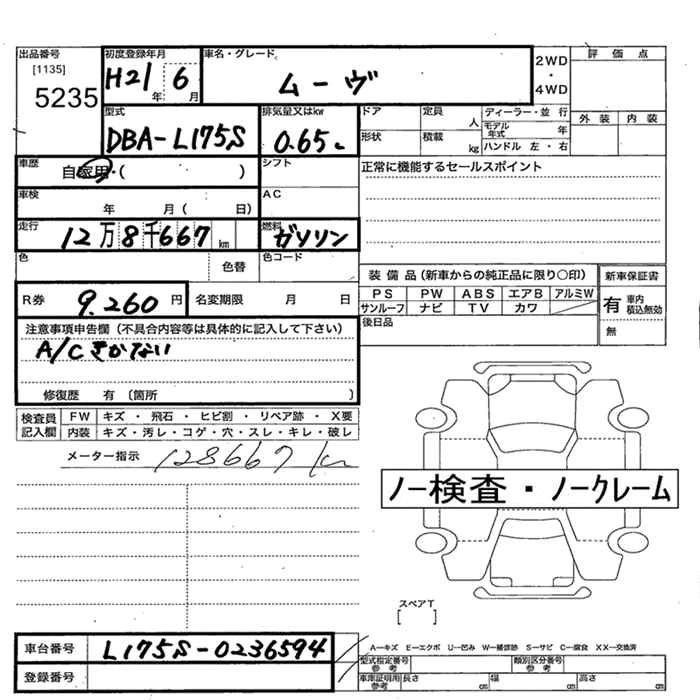 出品番号 初度登録年月 車名・グレード 評価点
[1135] H21年 6月 ムーヴ 2WD・4WD
5235 外装 内装
型式 排気量又はkw ドア 定員 人 ディーラー・並行
DBA-L175S 0.65L モデル年式 年
形状 積載 kg ハンドル 左・右
車歴 自家用・( ) シフト 正常に機能するセールスポイント
車検 年 月( 日) AC
走行 12万8千667km 燃料 ガソリン
色 色替 色コード 装備品(新車からの純正品に限り〇印) 新車保証書
R券 9.260円 名変期限 月 日 PS PW ABS エアB アルミW 有 車内積込無効
サンルーフ ナビ TV カワ
注意事項申告欄(不具合内容等は具体的に記入して下さい) 後日品 無
A/Cきかない
修復歴 有(箇所 )
検査員記入欄 FW キズ・飛石・ヒビ割・リペア跡・X要
内装 キズ・汚レ・コゲ・穴・スレ・キレ・破レ
メーター指示 128667 km
ノー検査・ノークレーム
スペアT
[ ]
車台番号 L175S-0236594 A–キズ E–エクボ U–凹み W–補修跡 S–サビ C–腐食 XX–交換済
型式指定番号 参考 類別区分番号 参考
登録番号 車庫証明用 参考 長さ cm 幅 cm 高さ cm